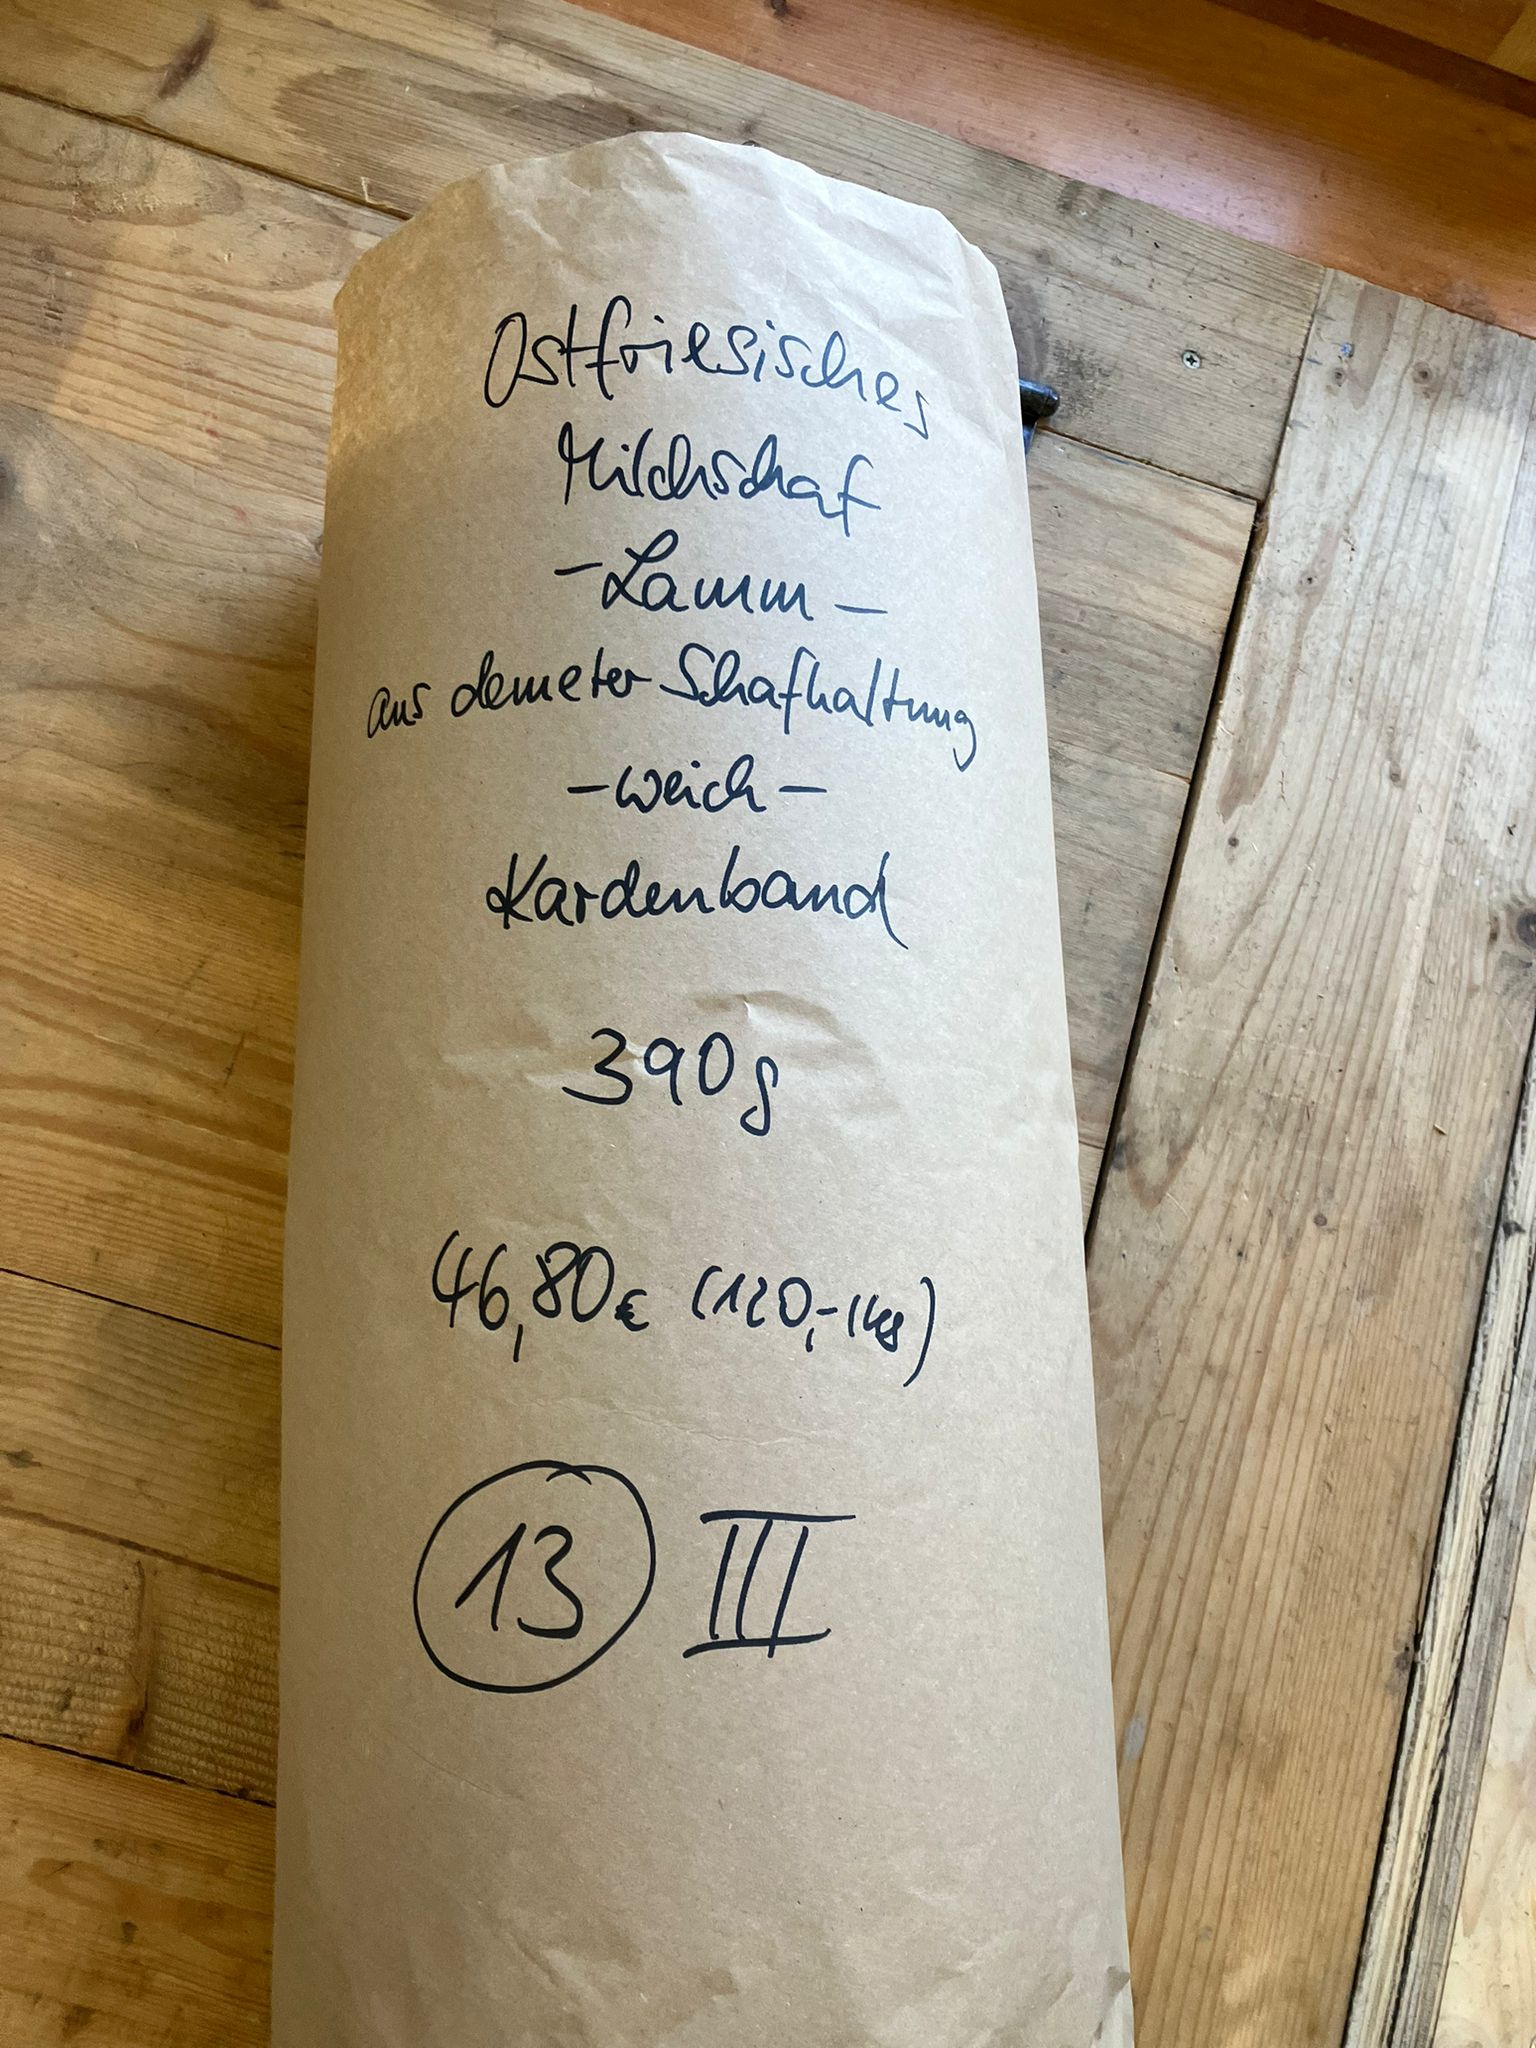 Ostfriesisches
Milchschaf
- Lamm -
aus demeter Schafhaltung
- weich -
Kardenband
390g
46,80€ (120,-/kg)
13 III